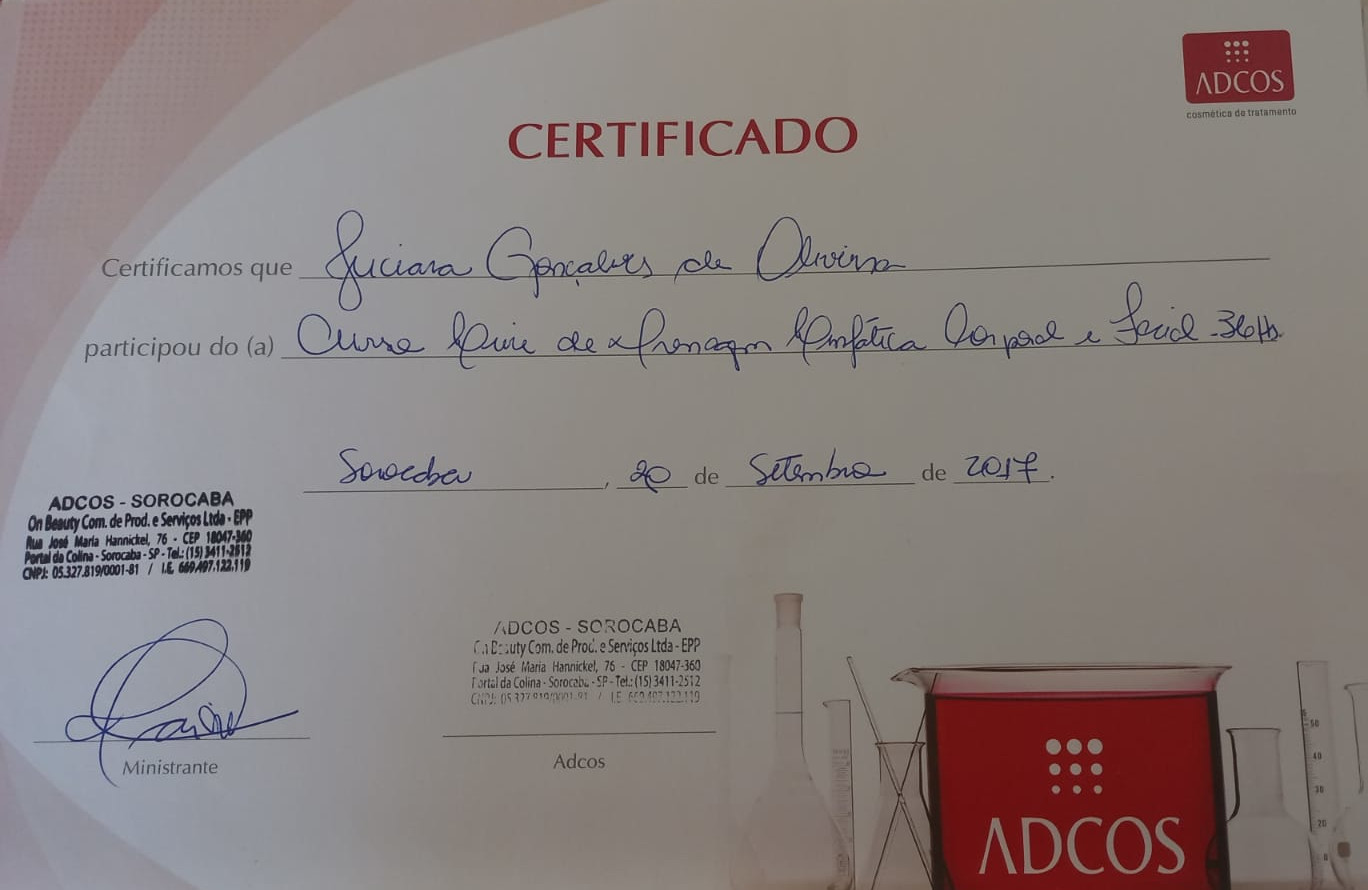 ADCOS
cosmética de tratamento
CERTIFICADO
Certificamos que Luciana Gonçalves de Oliveira
participou do (a) Curso Livre de Drenagem Linfática Corporal e Facial - 36Hs.
Sorocaba, 20 de Setembro de 2017.
ADCOS - SOROCABA
On Beauty Com. de Prod. e Serviços Ltda - EPP
Rua José Maria Hannickel, 76 - CEP 18047-360
Portal da Colina - Sorocaba - SP - Tel.: (15) 3411-2512
CNPJ: 05.327.819/0001-81 / I.E. 669.497.122.119
Ministrante
ADCOS - SOROCABA
On Beauty Com. de Prod. e Serviços Ltda - EPP
Rua José Maria Hannickel, 76 - CEP 18047-360
Portal da Colina - Sorocaba - SP - Tel.: (15) 3411-2512
CNPJ: 05.327.819/0001-81 / I.E. 669.497.122.119
Adcos
ADCOS
50
40
30
20